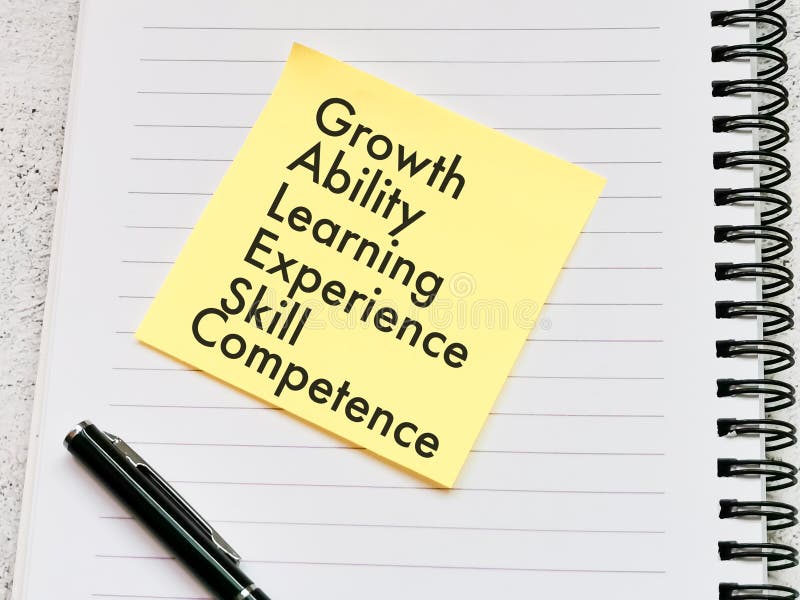 Growth
Ability
Learning
Experience
Skill
Competence